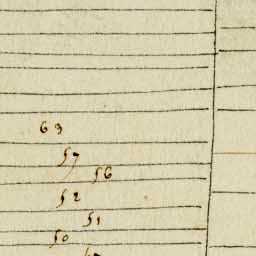 69
57
56
52
51
50